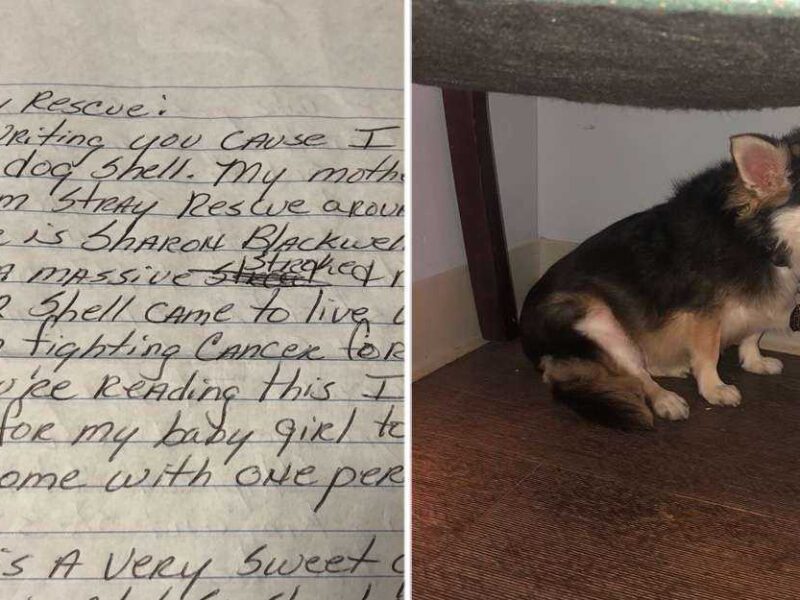 Rescue:
Writing you cause I
dog Shell. My moth
m Stray Rescue arou
is Sharon Blackwel
a massive Stroked
Shell came to live
fighting Cancer for
Reading this I
for my baby girl to
ome with one per
s a very sweet